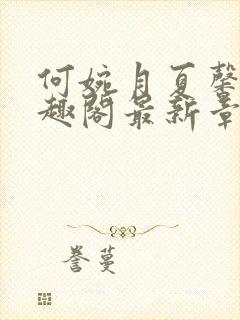 何婉月夏馨
趣阁最新章
誉蔓